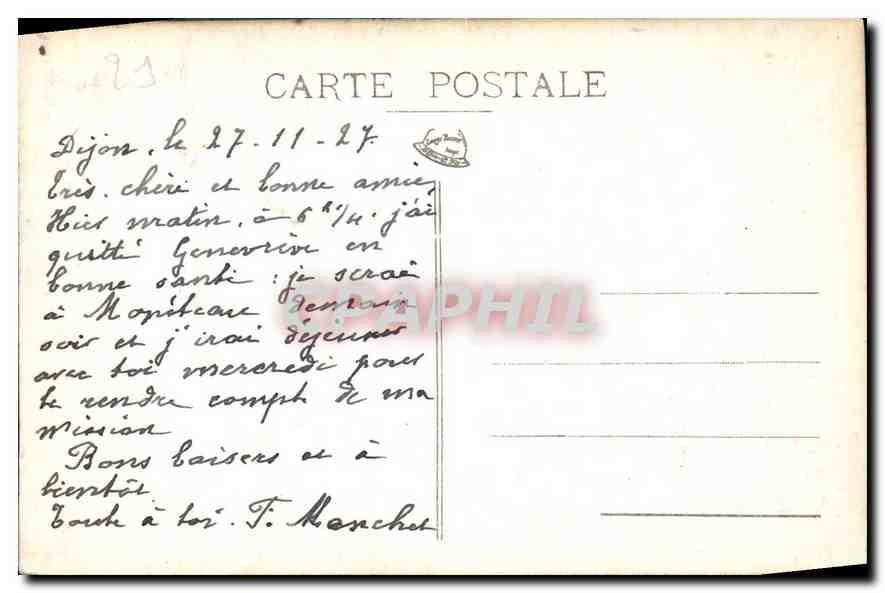 21
CARTE POSTALE
Dijon, le 27-11-27.
Très chère et bonne amie,
Hier matin, à 6h 1/4. j'ai
quitté Geneviève en
bonne santé : je serai
à Monéteau demain
soir et j'irai déjeuner
avec toi mercredi pour
te rendre compte de ma
mission
Bons baisers et à
bientôt
Toute à toi. F. Manchet
CPAPHIL